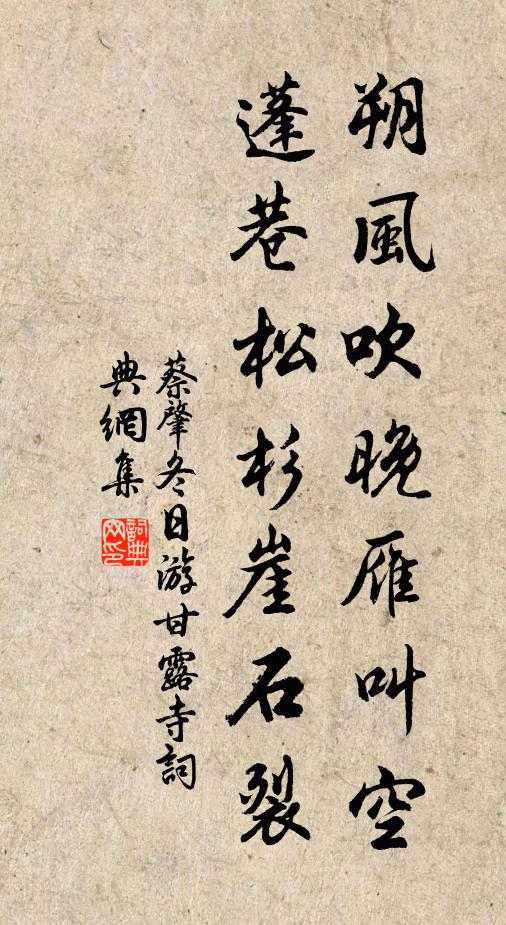 朔風吹晚雁叫空
蓬巷松杉崖石裂
蔡肇冬日游甘露寺詞
典網集
詞典网印